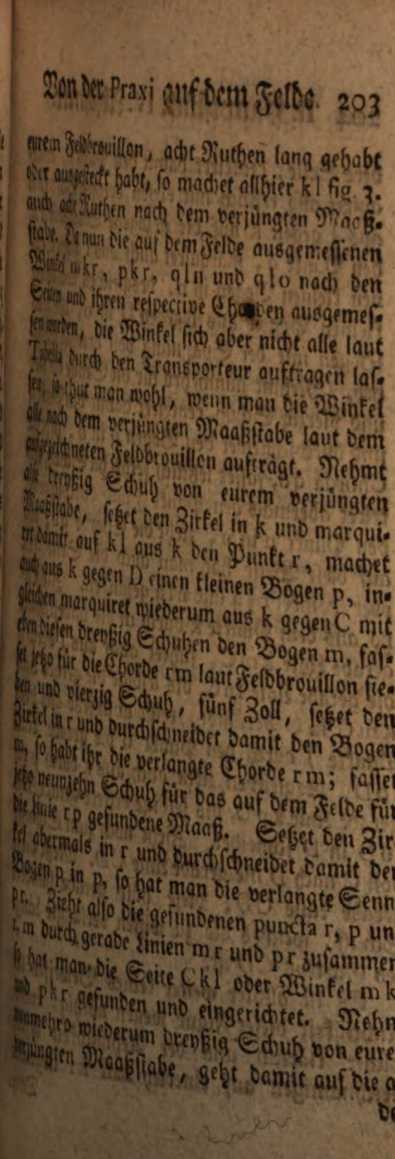 Von der Praxi auf dem Felde. 203
eurem Feldbrouillon, acht Ruthen lang gehabt
oder ausgesteckt habt, so machet allhier k l fig. 3.
auch acht Ruthen nach dem verjüngten Maaß-
stabe. Da nun die auf dem Felde ausgemessenen
Winkel m k r, p k r, q l n und q l o nach den
Seiten und ihren respective Chorden ausgemes-
sen worden, die Winkel sich aber nicht alle laut
Tabella durch den Transporteur auftragen las-
sen, so thut man wohl, wenn man die Winkel
alle nach dem verjüngten Maaßstabe laut dem
aufgezeichneten Feldbrouillon aufträgt. Nehmt
also dreyßig Schuh von eurem verjüngten
Maaßstabe, setzet den Zirkel in k und marqui-
ret damit auf k l aus k den Punkt r, machet
auch aus k gegen D einen kleinen Bogen p, in-
gleichen marquiret wiederum aus k gegen C mit
eben diesen dreyßig Schuhen den Bogen m, fas-
set jetzo für die Chorde r m laut Feldbrouillon sie-
ben und vierzig Schuh, fünf Zoll, setzet den
Zirkel in r und durchschneidet damit den Bogen
m, so habt ihr die verlangte Chorde r m; fasset
jetzo neunzehn Schuh für das auf dem Felde für
die Linie r p gefundene Maaß. Setzet den Zir
kel abermals in r und durchschneidet damit de
Bogen p in p, so hat man die verlangte Senn
p r. Zieht also die gefundenen puncta r, p un
m durch gerade Linien m r und p r zusammen
so hat man die Seite C k l oder Winkel m k
und p k r gefunden und eingerichtet. Nehm
nunmehro wiederum dreyßig Schuh von eure
verjüngten Maaßstabe, geht damit auf die a
de